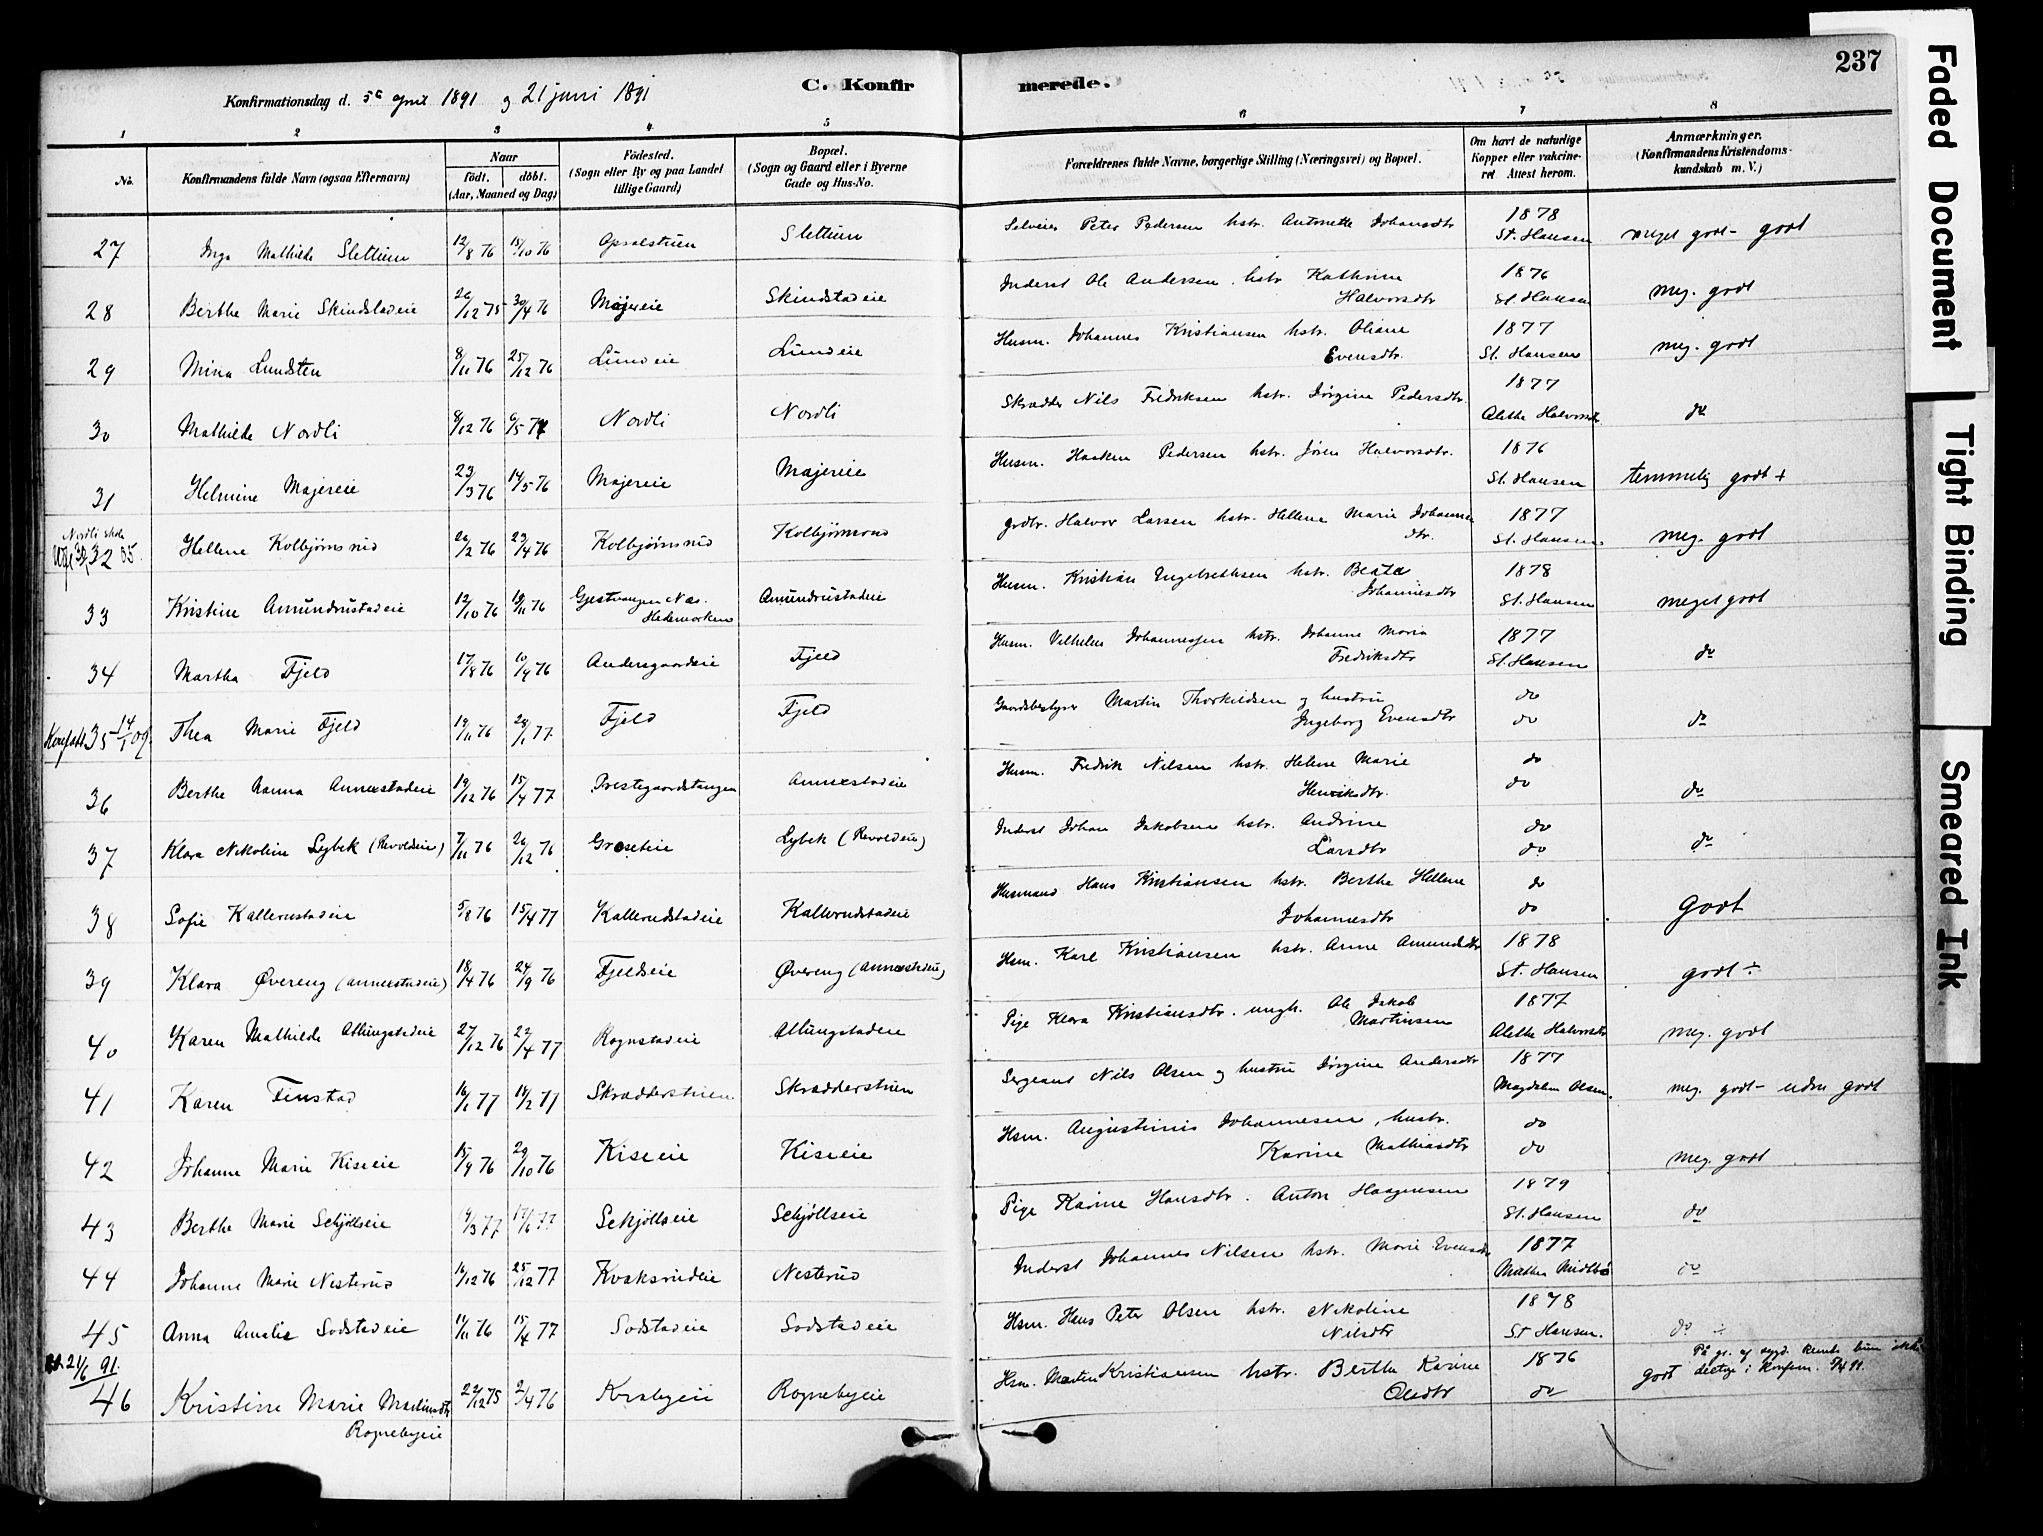 237
Faded Document
Tight Binding
Smeared Ink
C. Konfirmerede.
Konfirmationsdag d. 5 april 1891 og 21 juni 1891
1 2 3 4 5 6 7 8
No. Konfirmandens fulde Navn (ogsaa Efternavn) Naar født. døbt. (Aar, Maaned og Dag) Fødested. (Sogn eller By og paa Landet tillige Gaard) Bopæl. (Sogn og Gaard eller i Byerne Gade og Hus-No. Forældrenes fulde Navne, borgerlige Stilling (Næringsvei) og Bopæl. Om havt de naturlige Kopper eller vakcineret Attest herom. Anmærkninger. (Konfirmandens Kristendomskundskab m. V.)
27 Inga Mathilde Slettum 12/8 76 15/10 76 Opsalstuen Slettum Selveier Peter Pedersen hstr. Antonette Johansdtr 1878 St. Hansen meget godt - godt
28 Berthe Marie Skindstadeie 26/12 75 30/4 76 Majereie Skindstadeie Inderst Ole Andersen hstr. Kathrine Halvorsdtr 1876 St. Hansen meg. godt
29 Mina Lundsten 8/11 76 25/12 76 Lundeie Lundeie Husm. Johannes Kristiansen hstr. Oliane Evensdtr. 1877 St. Hansen meg. godt
30 Mathilde Nordli 9/12 76 6/5 77 Nordli Nordli Skrædder Nils Fredriksen hstr. Jørgine Pedersdtr. 1877 Alethe Halvorsdtr do
31 Helmine Majereie 23/3 76 14/5 76 Majereie Majereie Husm. Haaken Pedersen hstr. Jøren Halvorsdtr. 1876 St. Hansen temmelig godt +
Nordli skole
32 Hellene Kolbjørnsrud 26/2 76 23/4 76 Kolbjørnsrud Kolbjørnsrud Grdbr. Halvor Larsen hstr. Hellene Marie Johannesdtr. 1877 St. Hansen meg. godt
33 Kristine Amundrustadeie 12/10 76 19/11 76 Gjestvangen Næs. Hedemarken Amundrustadeie Husm. Kristian Engebrethsen hstr. Beate Johannesdtr 1878 St. Hansen meget godt
34 Martha Fjeld 17/8 76 10/9 76 Andersgaardseie Fjeld Husm. Vilhelm Johannessen hstr. Johanne Maria Fredriksdtr 1877 St. Hansen do
35 Thea Marie Fjeld 19/11 76 28/1 77 Fjeld Fjeld Gaardsbestyrer Martin Thorkildsen og hustru Ingeborg Evensdtr do do do
36 Berthe Nanna Annexstadeie 19/12 76 15/4 77 Prestegaardstangen Annexstadeie Husm. Fredrik Nilsen hstr. Helene Marie Henriksdtr. do do do
37 Klara Nikoline Lybek (Revoldeie) 7/11 76 26/12 76 Grøseteie Lybek (Revoldeie) Inderst Johan Jakobsen hstr. Andrine Larsdtr do do do
38 Sofie Kallerustadeie 5/8 76 15/4 77 Kallerudstadeie Kallerudstadeie Husmand Hans Kristiansen hstr. Berthe Hellene Johannesdtr do do godt
39 Klara Øvereng (Annexstadeie) 18/4 76 24/9 76 Fjeldseie Øvereng (Annexstadeie) Hsm. Karl Kristiansen hstr. Anne Amundsdtr 1878 St. Hansen godt ÷
40 Karen Mathilde Attingstadeie 27/12 76 22/4 77 Rognstadeie Attingstadeie Pige Klara Kristiansdtr. ungk. Ole Jakob Martinsen 1877 Alethe Halvorsdtr meg. godt
41 Karen Finstad 16/1 77 18/2 77 Skrædderstuen Skrædderstuen Sergeant Nils Olsen og hustru Jørgine Andersdtr 1877 Magdalen Olsen. meg. godt - uden godt
42 Johanne Marie Kiseeie 15/9 76 29/10 76 Kiseeie Kiseeie Hsm. Augustinus Johannesen, hustr. Karine Mathiasdtr do do meg. godt
43 Berthe Marie Schjøllseie 19/3 77 17/6 77 Schjøllseie Schjøllseie Pige Karine Hansdtr. Anton Haagensen 1879 St. Hansen do
44 Johanne Marie Nesterud 16/12 76 25/12 77 Koksrudeie Nesterud Inderst Johannes Nilsen hstr. Marie Evensdtr 1877 Mathea Midtbø do
45 Anna Amalie Sodstadeie 11/11 76 15/4 77 Sodstadeie Sodstadeie Hsm. Hans Peter Olsen hstr. Nikoline Nilsdtr 1878 St Hansen. do ÷
21/6 91.
46 Kristine Marie Martinsdtr Rognebyeie 22/12 75 2/4 76 Krabyeie Rognebyeie Hsm. Martin Kristiansen hstr. Berthe Karine Olsdtr 1876 do godt På gr. af sygd. kunde hun ikke deltage i konfirm. 5/4 91.